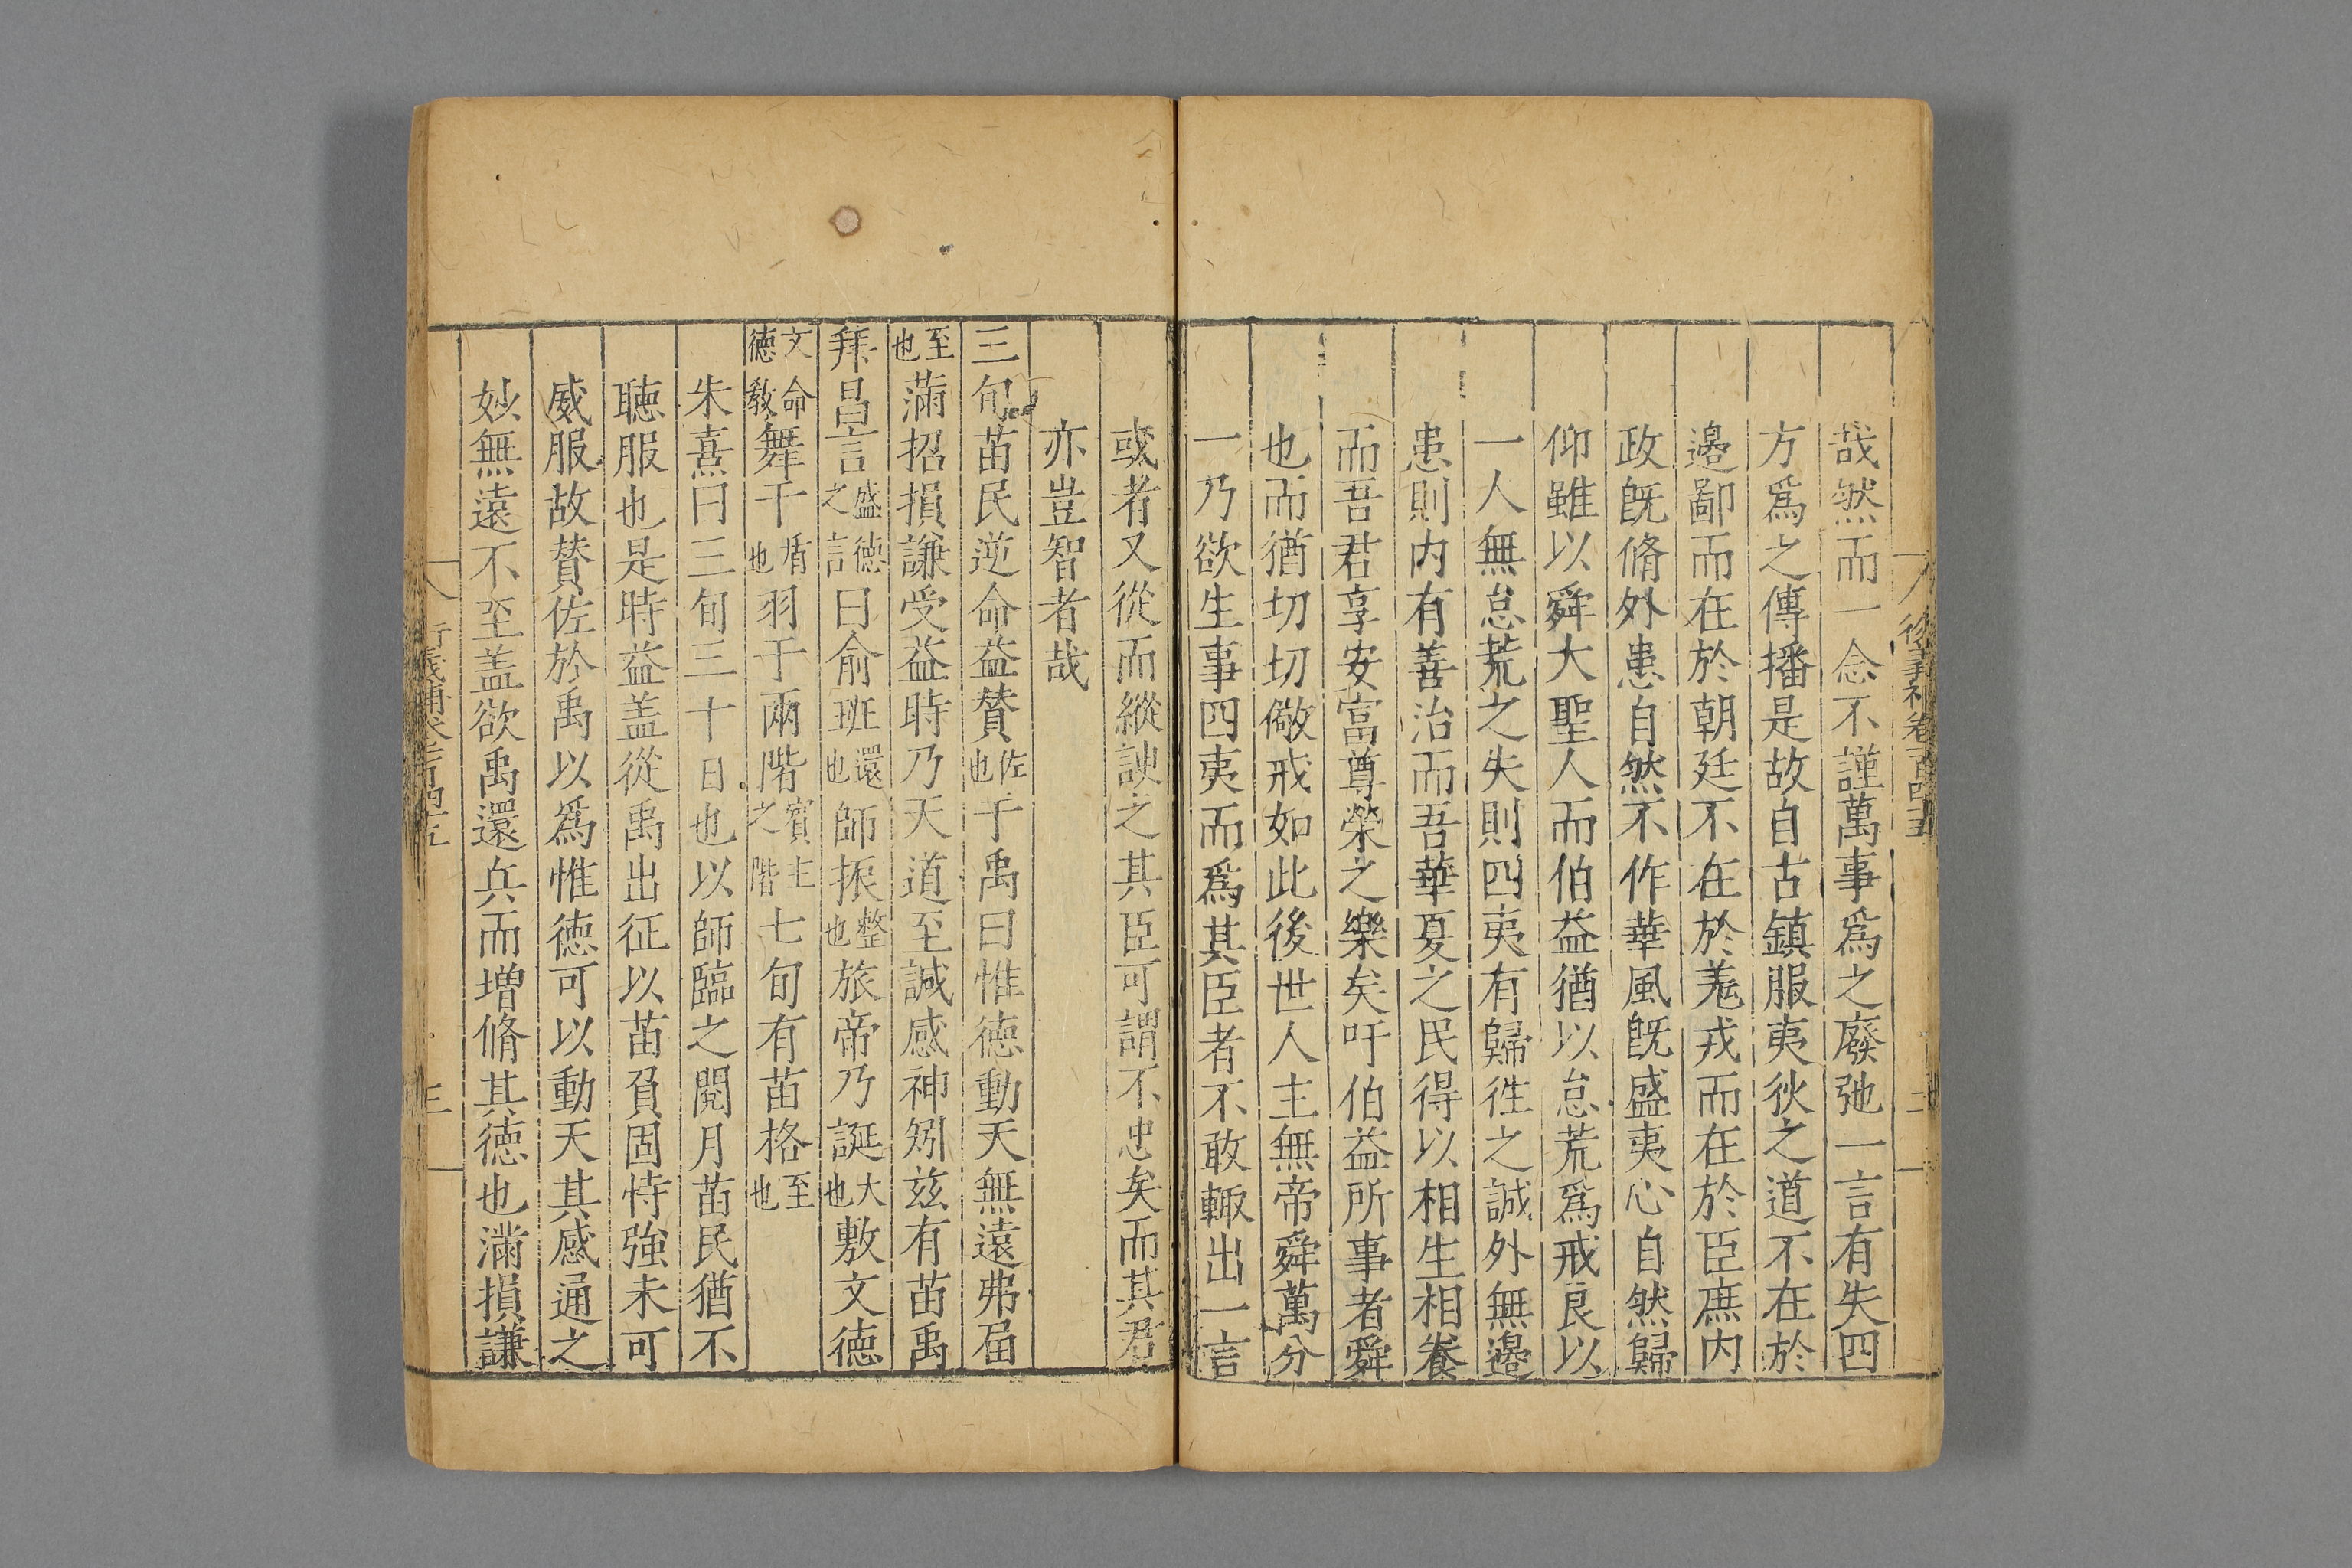 衍義補卷一百四十五
二
哉然而一念不謹萬事爲之廢弛一言有失四
方爲之傳播是故自古鎮服夷狄之道不在於
邉鄙而在於朝廷不在於羗戎而在於臣庶内
政既脩外患自然不作華風既盛夷心自然歸
仰雖以舜大聖人而伯益猶以怠荒爲戒良以
一人無怠荒之失則四夷有歸徃之誠外無邉
患則内有善治而吾華夏之民得以相生相飬
而吾君享安富尊榮之樂矣吁伯益所事者舜
也而猶切切儆戒如此後世人主無帝舜萬分
一乃欲生事四夷而爲其臣者不敢輙出一言
或者又從而縱諛之其臣可謂不忠矣而其君
亦豈智者哉
三旬苗民逆命益贊佐也于禹曰惟徳動天無遠弗届
至也滿招損謙受益時乃天道至諴感神矧兹有苗禹
拜昌言盛徳之言曰俞班還也師振整也旅帝乃誕大也敷文徳
文命徳教舞干盾也羽于兩階賓主之階七旬有苗格至也
朱熹曰三旬三十日也以師臨之閱月苗民猶不
聽服也是時益盖從禹出征以苗負固恃強未可
威服故賛佐於禹以爲惟徳可以動天其感通之
妙無遠不至盖欲禹還兵而增脩其徳也滿損謙
衍義補卷一百四十五
三